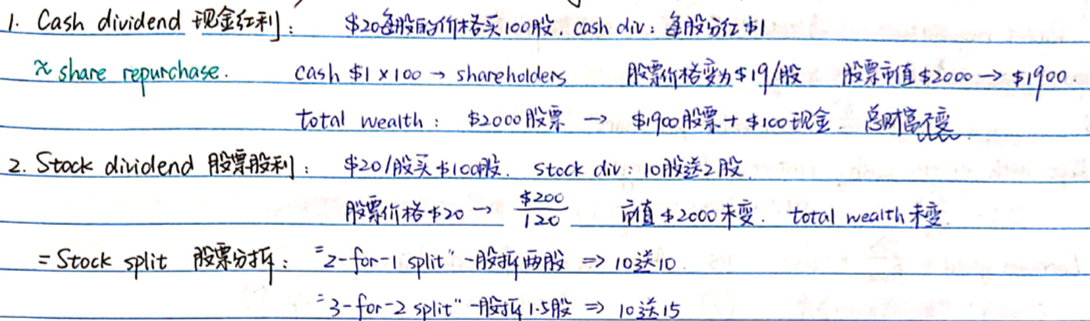 1. Cash dividend 现金红利: $20每股的价格买100股. cash div: 每股分红$1
≈ share repurchase. cash $1×100 → shareholders 股票价格变为$19/股 股票市值$2000 → $1900.
total wealth: $2000股票 → $1900股票 + $100现金. 总财富不变
2. Stock dividend 股票股利: $20/股买$100股. stock div: 10股送2股.
股票价格$20 → $200/120 市值$2000未变. total wealth未变.
= Stock split 股票分拆: "2-for-1 split" 一股拆两股 ⇒ 10送10.
"3-for-2 split" 一股拆1.5股 ⇒ 10送15